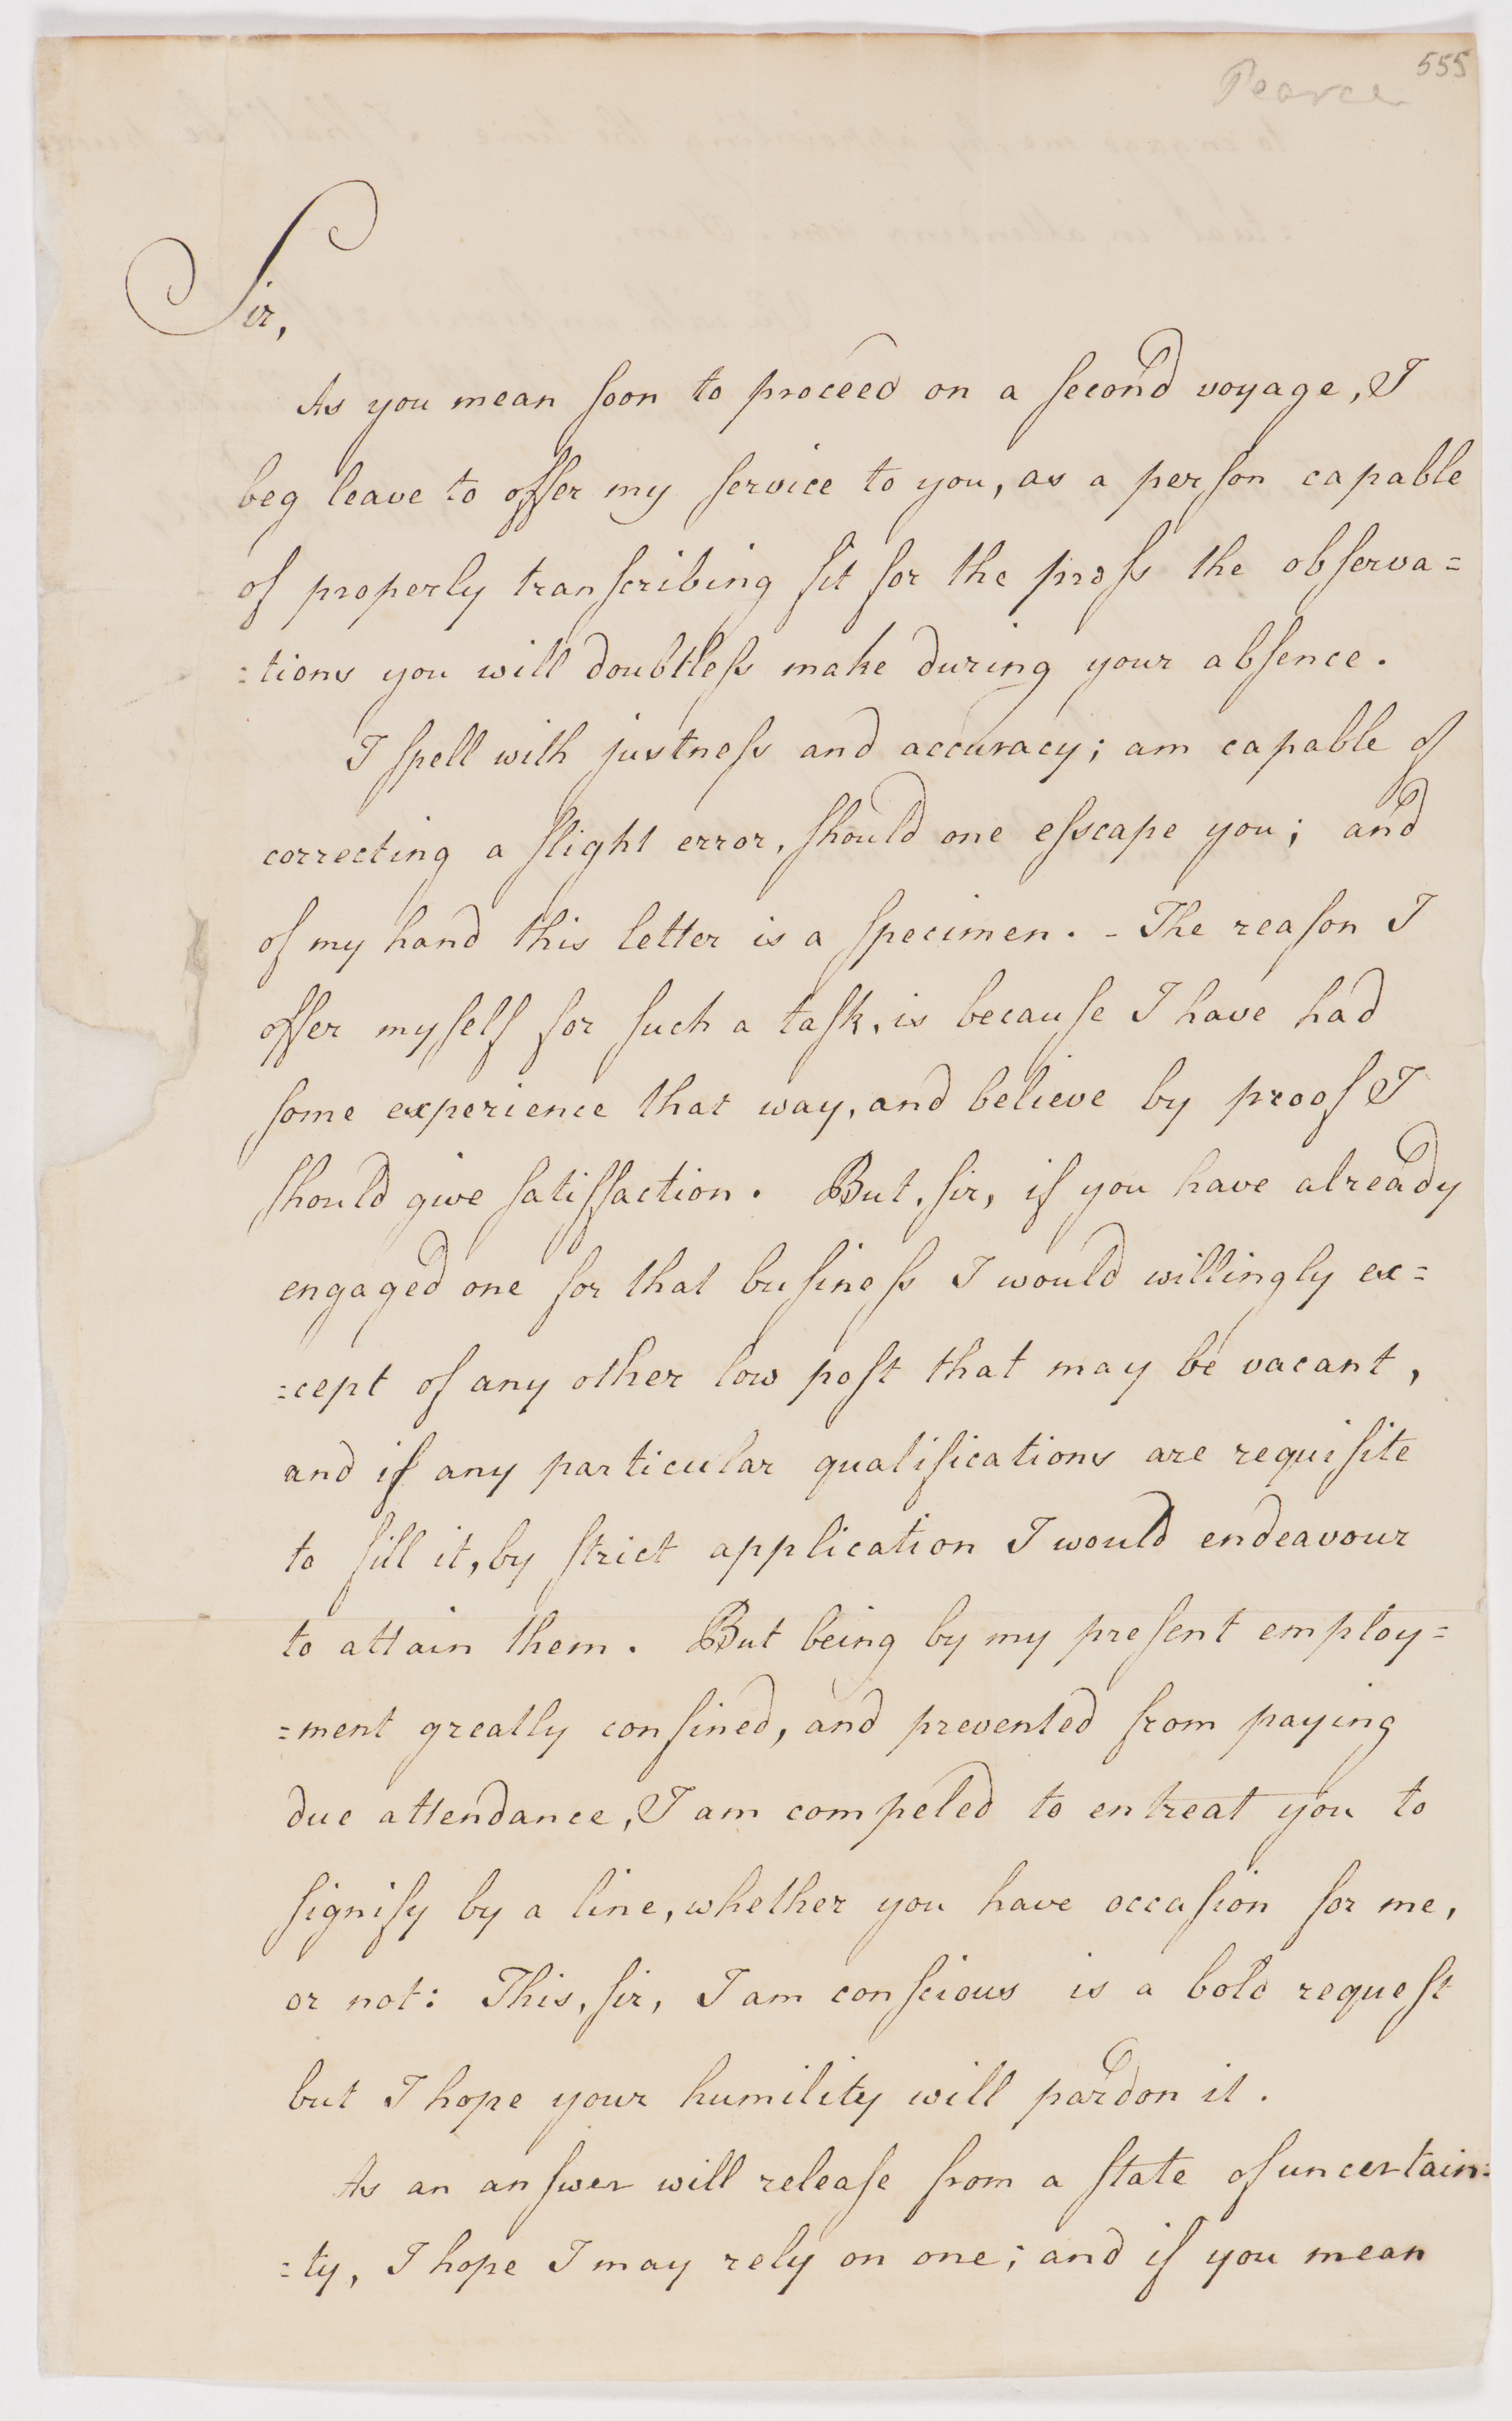 555
Pearce
Sir,
As you mean ſoon to proceed on a ſecond voyage, I
beg leave to offer my ſervice to you, as a perſon capable
of properly tranſcribing fit for the preſs the obſerva=
:tions you will doubtleſs make during your abſence.
I ſpell with juſtneſs and accuracy; am capable of
correcting a ſlight error, ſhould one eſscape you; and
of my hand this letter is a ſpecimen. - The reaſon I
offer myſelf for ſuch a taſk, is becauſe I have had
ſome experience that way, and believe by proof I
ſhould give ſatiſfaction. But, ſir, if you have already
engaged one for that buſineſs I would willingly ex=
:cept of any other low poſt that may be vacant,
and if any particular qualifications are requiſite
to fill it, by ſtrict application I would endeavour
to attain them. But being by my preſent employ=
=ment greatly confined, and prevented from paying
due attendance, I am compeled to entreat you to
ſignify by a line, whether you have occaſion for me,
or not: This, ſir, I am conſcious is a bold requeſt
but I hope your humility will pardon it.
As an anſwer will releaſe from a ſtate of uncertain=
:ty, I hope I may rely on one; and if you mean